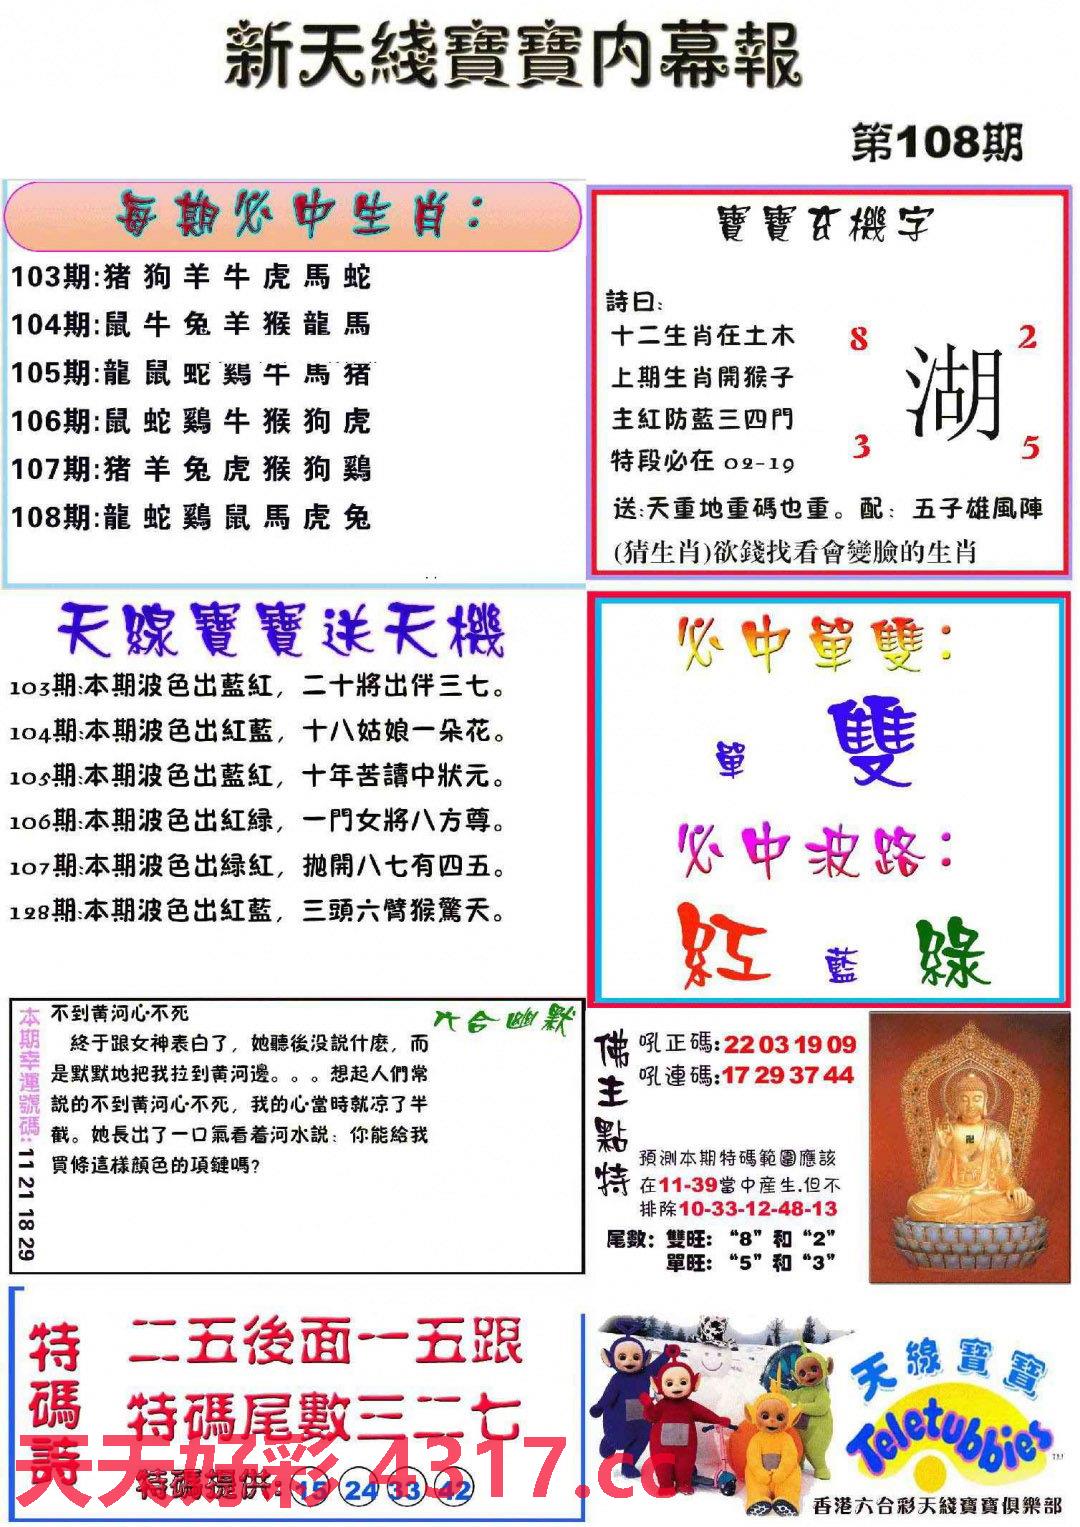 新天綫寶寶内幕報
第108期
每期必中生肖：
103期:猪 狗 羊 牛 虎 馬 蛇
104期:鼠 牛 兔 羊 猴 龍 馬
105期:龍 鼠 蛇 鷄 牛 馬 猪
106期:鼠 蛇 鷄 牛 猴 狗 虎
107期:猪 羊 兔 虎 猴 狗 鷄
108期:龍 蛇 鷄 鼠 馬 虎 兔
寶寶玄機字
詩曰:
十二生肖在土木
上期生肖開猴子
主紅防藍三四門
特段必在 02-19
8 2
湖
3 5
送:天重地重碼也重。配：五子雄風陣
(猜生肖)欲錢找看會變臉的生肖
天線寶寶送天機
103期:本期波色出藍紅，二十將出伴三七。
104期:本期波色出紅藍，十八姑娘一朵花。
105期:本期波色出藍紅，十年苦讀中狀元。
106期:本期波色出紅緑，一門女將八方尊。
107期:本期波色出緑紅，拋開八七有四五。
128期:本期波色出紅藍，三頭六臂猴驚天。
必中單雙：
單 雙
必中波路：
紅 藍 綠
本期幸運號碼:11 21 18 29
六合幽默
不到黄河心不死
終于跟女神表白了，她聽後没説什麽，而
是默默地把我拉到黄河邊。。。想起人們常
説的不到黄河心不死，我的心當時就凉了半
截。她長出了一口氣看着河水説：你能給我
買條這樣顔色的項鏈嗎?
佛主點特
吼正碼:22 03 19 09
吼連碼:17 29 37 44
預測本期特碼範圍應該
在11-39當中産生.但不
排除10-33-12-48-13
尾數：雙旺：“8”和“2”
單旺：“5”和“3”
特碼詩
二五後面一五跟
特碼尾數三二七
特碼提供: 15 24 33 42
天天好彩.4317.cc
天線寶寶
Teletubbies
TM
香港六合彩天綫寶寶俱樂部